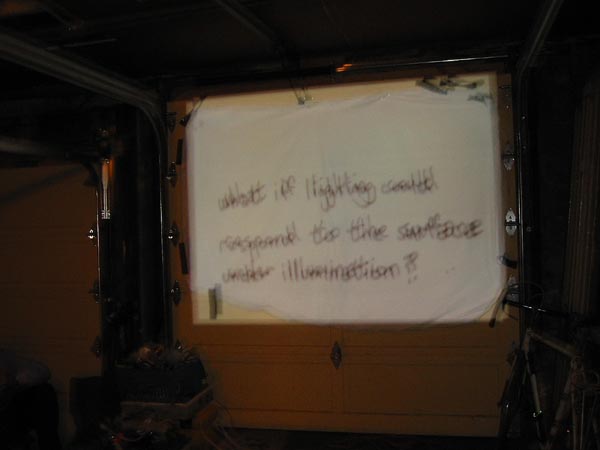 what if lighting could
respond to the surface
under illumination?